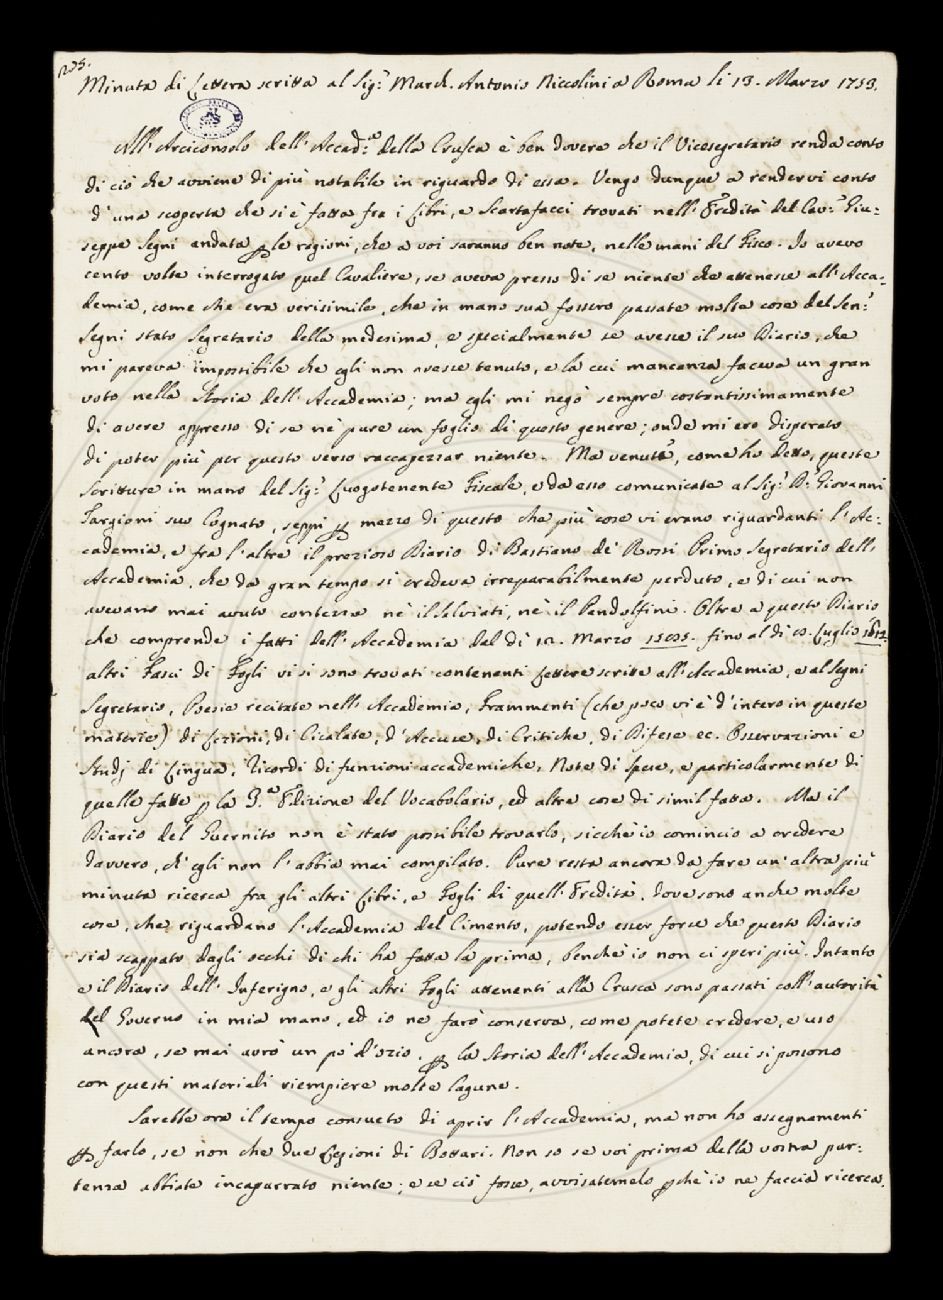 Minuta di Lettera scritta al Sig.r March. Antonio Niccolini a Roma li 13. Marzo 1753.
All'Arciconsolo dell'Accad.a della Crusca è ben dovere che il Vicesegretario renda conto
di ciò che avviene di più notabile in riguardo di essa. Vengo dunque a rendervi conto
d'una scoperta che si è fatta fra i Libri, e Scartafacci trovati nell'Eredità del Cav.r Giu:
seppe Segni andata p le ragioni, che a voi saranno ben note, nelle mani del Fisco. Io avevo
cento volte interrogato quel Cavaliere, se aveva presso di se niente che attenesse all'Acca:
demia, come che era verisimile, che in mano sua fossero passate molte cose del Sen.r
Segni stato Segretario della medesima, e specialmente se avesse il suo Diario, che
mi pareva impossibile che egli non avesse tenuto, e la cui mancanza faceva un gran
voto nella Storia dell'Accademia; ma egli mi negò sempre costantissimamente
di avere appresso di se nè pure un foglio di questo genere; onde mi ero disperato
di poter più per questo verso raccapezzar niente. Ma venute, come ho detto, queste
Scritture in mano del Sig.r Luogotenente Fiscale, e da esso comunicate al Sig.r D.r Giovanni
Targioni suo Cognato, seppi p mezzo di questo che più cose vi erano riguardanti l'Ac:
cademia, e fra l'altre il prezioso Diario di Bastiano de' Rossi Primo Segretario dell'
Accademia, che da gran tempo si credeva irreparabilmente perduto, e di cui non
avevano mai avuto contezza nè il Salviati, nè il Pandolfini. Oltre a questo Diario
che comprende i fatti dell'Accademia dal dì Marzo fino al dì Luglio
altri Fasci di Fogli vi si sono trovati contenenti Lettere scritte all'Accademia, e al Segni
Segretario, Poesie recitate nell'Accademia, Frammenti (che poco vi è d'intero in queste
materie) di Lezioni, di Cicalate, d'Accuse, di Critiche, di Difese ec. Osservazioni e
Studj di Lingua, Ricordi di funzioni accademiche, Note di Spese, e particolarmente di
quelle fatte p la 3.a Edizione del Vocabolario, ed altre cose di simil fatta. Ma il
Diario del Guernito non è stato possibile trovarlo, sicchè io comincio a credere
davvero, ch'egli non l'abbia mai compilato. Pure resta ancora da fare un'altra più
minuta ricerca fra gli altri Libri, e Fogli di quell'Eredità, dove sono anche molte
cose, che riguardano l'Accademia del Cimento, potendo esser forse che questo Diario
sia scappato dagli occhi di chi ha fatta la prima, benchè io non ci speri più. Intanto
e il Diario dell'Inferigno, e gli altri Fogli attenenti alla Crusca sono passati coll'autorità
del Governo in mia mano, ed io ne farò conserva, come potete credere, e uso
ancora, se mai avrò un pò d'ozio, p la Storia dell'Accademia, di cui si possono
con questi materiali riempiere molte lagune.
Sarebbe ora il tempo consueto di aprir l'Accademia, ma non ho assegnamenti
p farlo, se non che due Lezioni di Bottari. Non so se voi prima della vostra par:
tenza abbiate incaparrato niente; e se ciò fosse, avvisatemelo pchè io ne faccia ricerca.